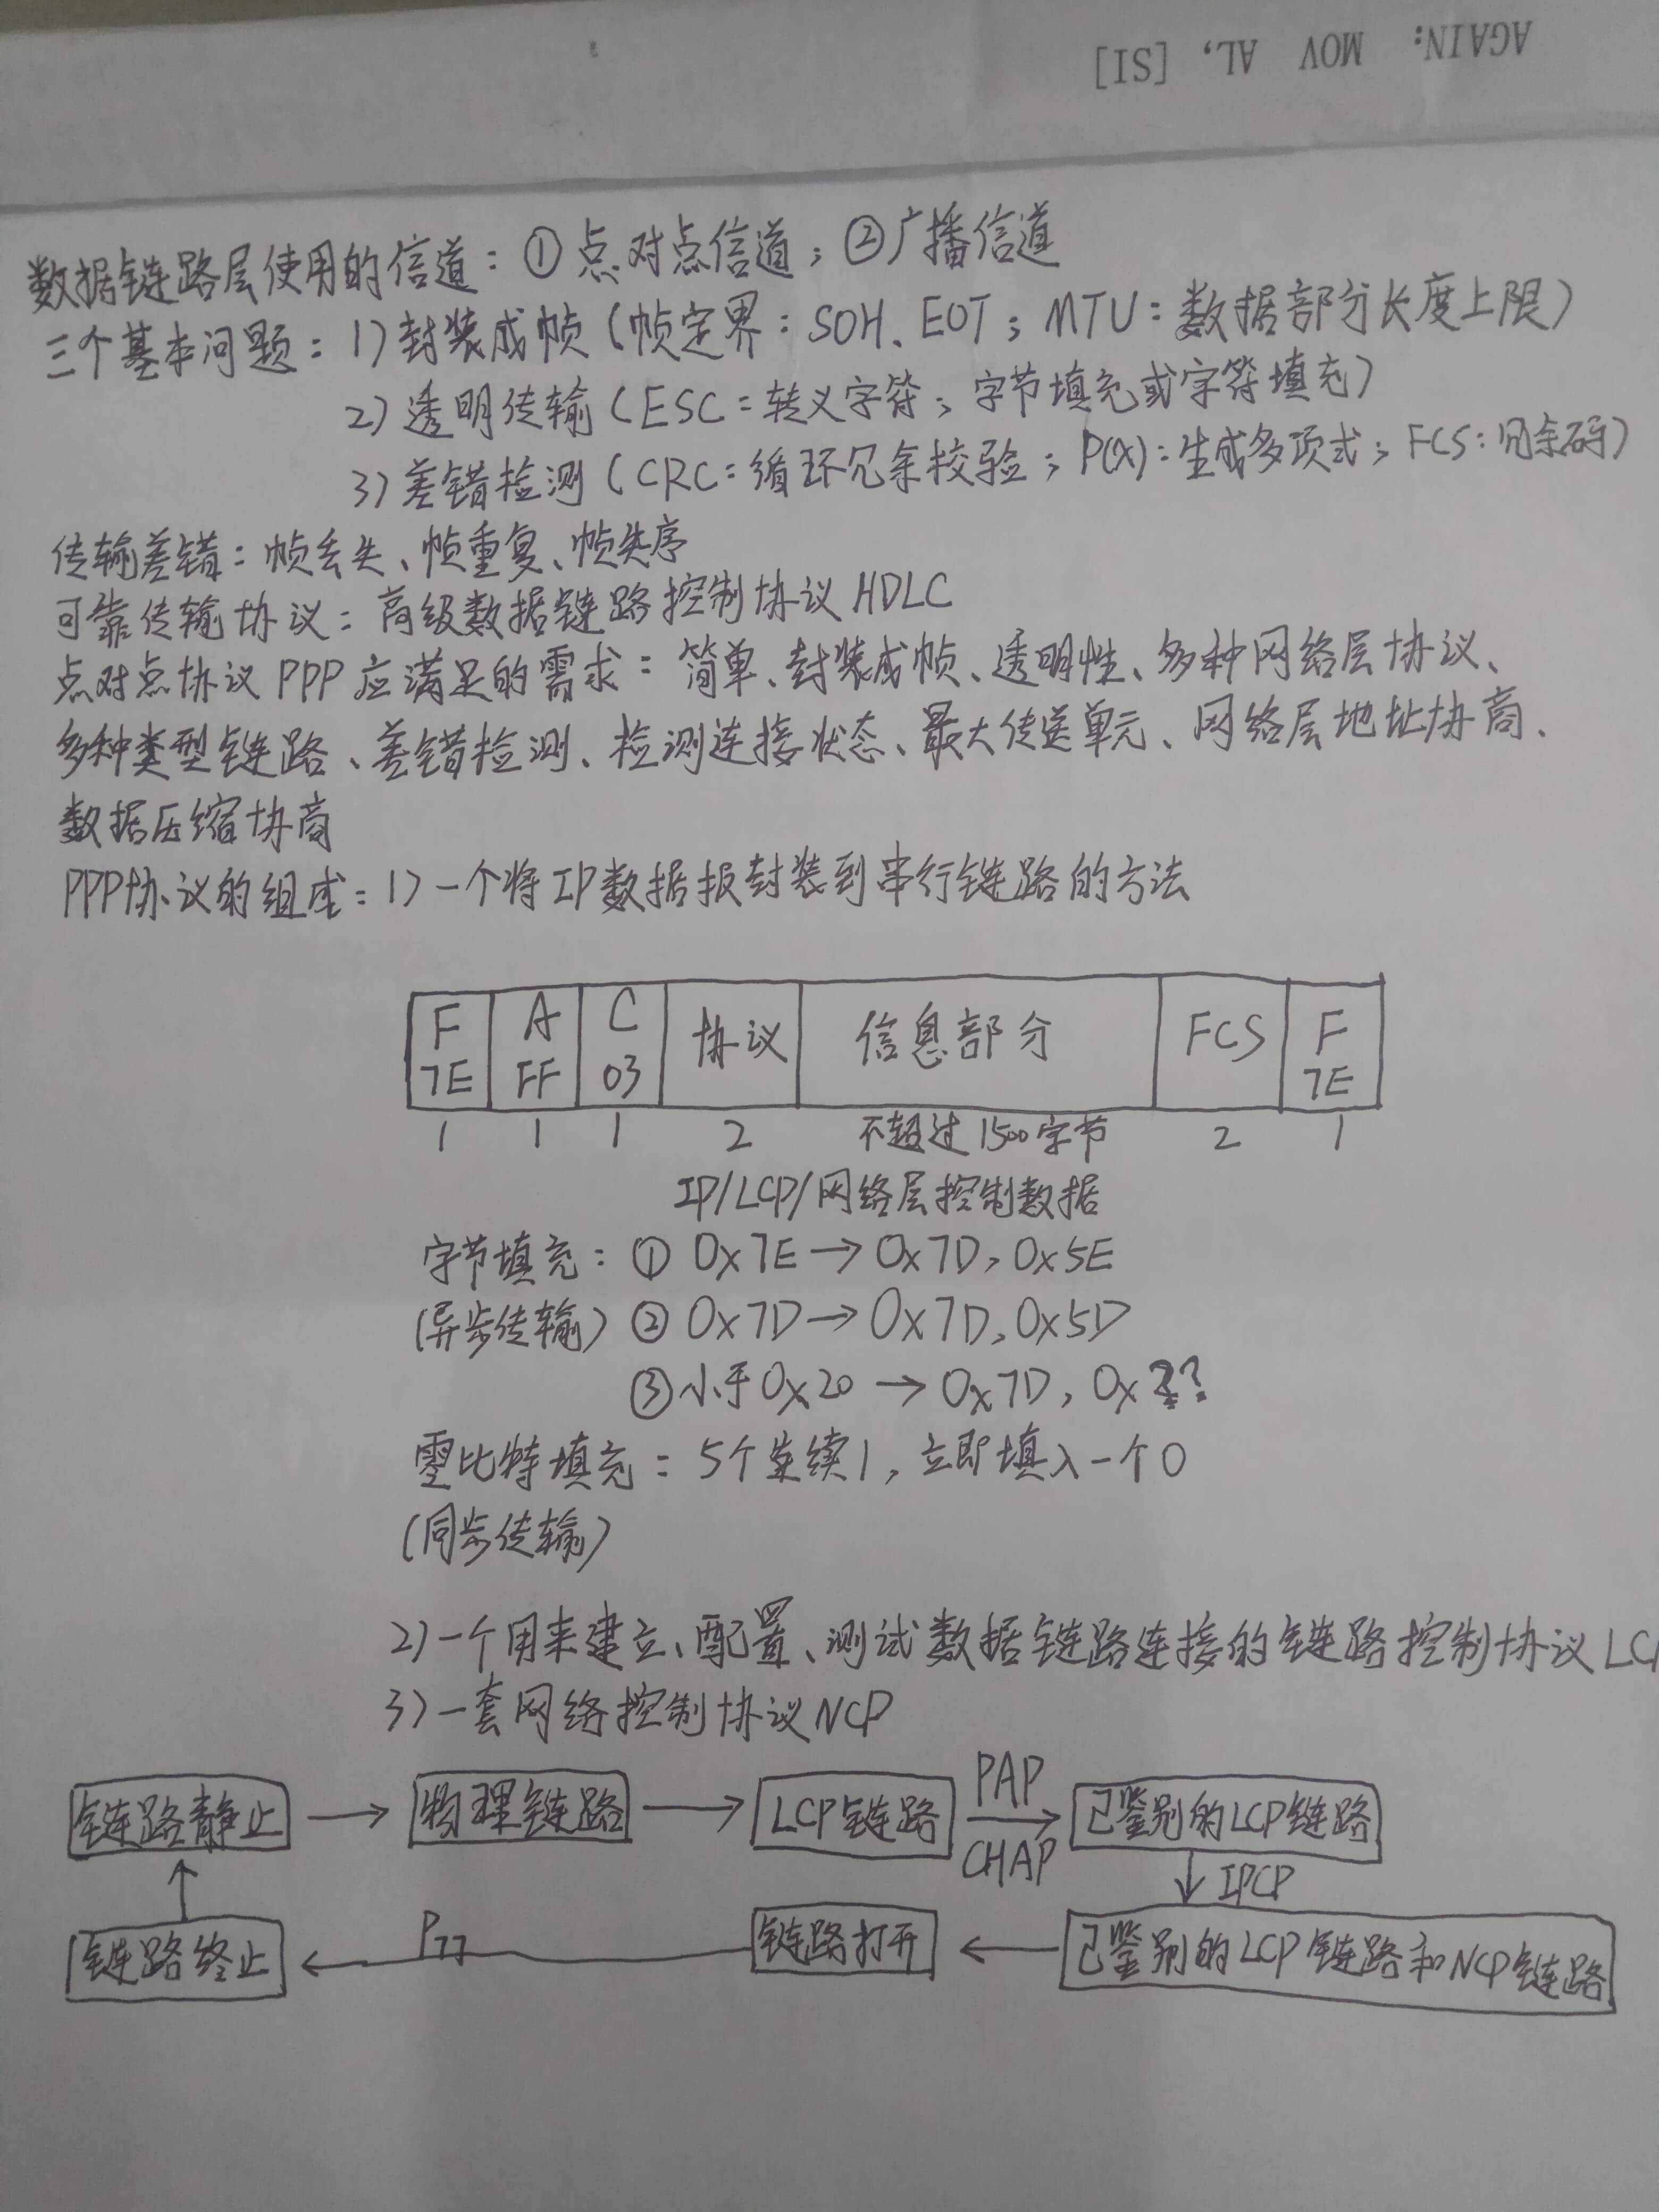 AGAIN: MOV AL, [SI]
数据链路层使用的信道：①点对点信道；②广播信道
三个基本问题：1)封装成帧(帧定界：SOH、EOT；MTU：数据部分长度上限)
2)透明传输(ESC：转义字符；字节填充或字符填充)
3)差错检测(CRC：循环冗余校验；P(X)：生成多项式；FCS：冗余码)
传输差错：帧丢失、帧重复、帧失序
可靠传输协议：高级数据链路控制协议HDLC
点对点协议PPP应满足的需求：简单、封装成帧、透明性、多种网络层协议、
多种类型链路、差错检测、检测连接状态、最大传送单元、网络层地址协商、
数据压缩协商
PPP协议的组成：1)一个将IP数据报封装到串行链路的方法
F A C 协议 信息部分 FCS F
7E FF 03 7E
1 1 1 2 不超过1500字节 2 1
IP/LCP/网络层控制数据
字节填充：①0x7E→0x7D,0x5E
(异步传输)②0x7D→0x7D,0x5D
③小于0x20→0x7D,0x??
零比特填充：5个连续1,立即填入一个0
(同步传输)
2)一个用来建立、配置、测试数据链路连接的链路控制协议LC
3)一套网络控制协议NCP
链路静止→物理链路→LCP链路 PAP CHAP 已鉴别的LCP链路
↓IPCP
链路终止←链路打开←已鉴别的LCP链路和NCP链路